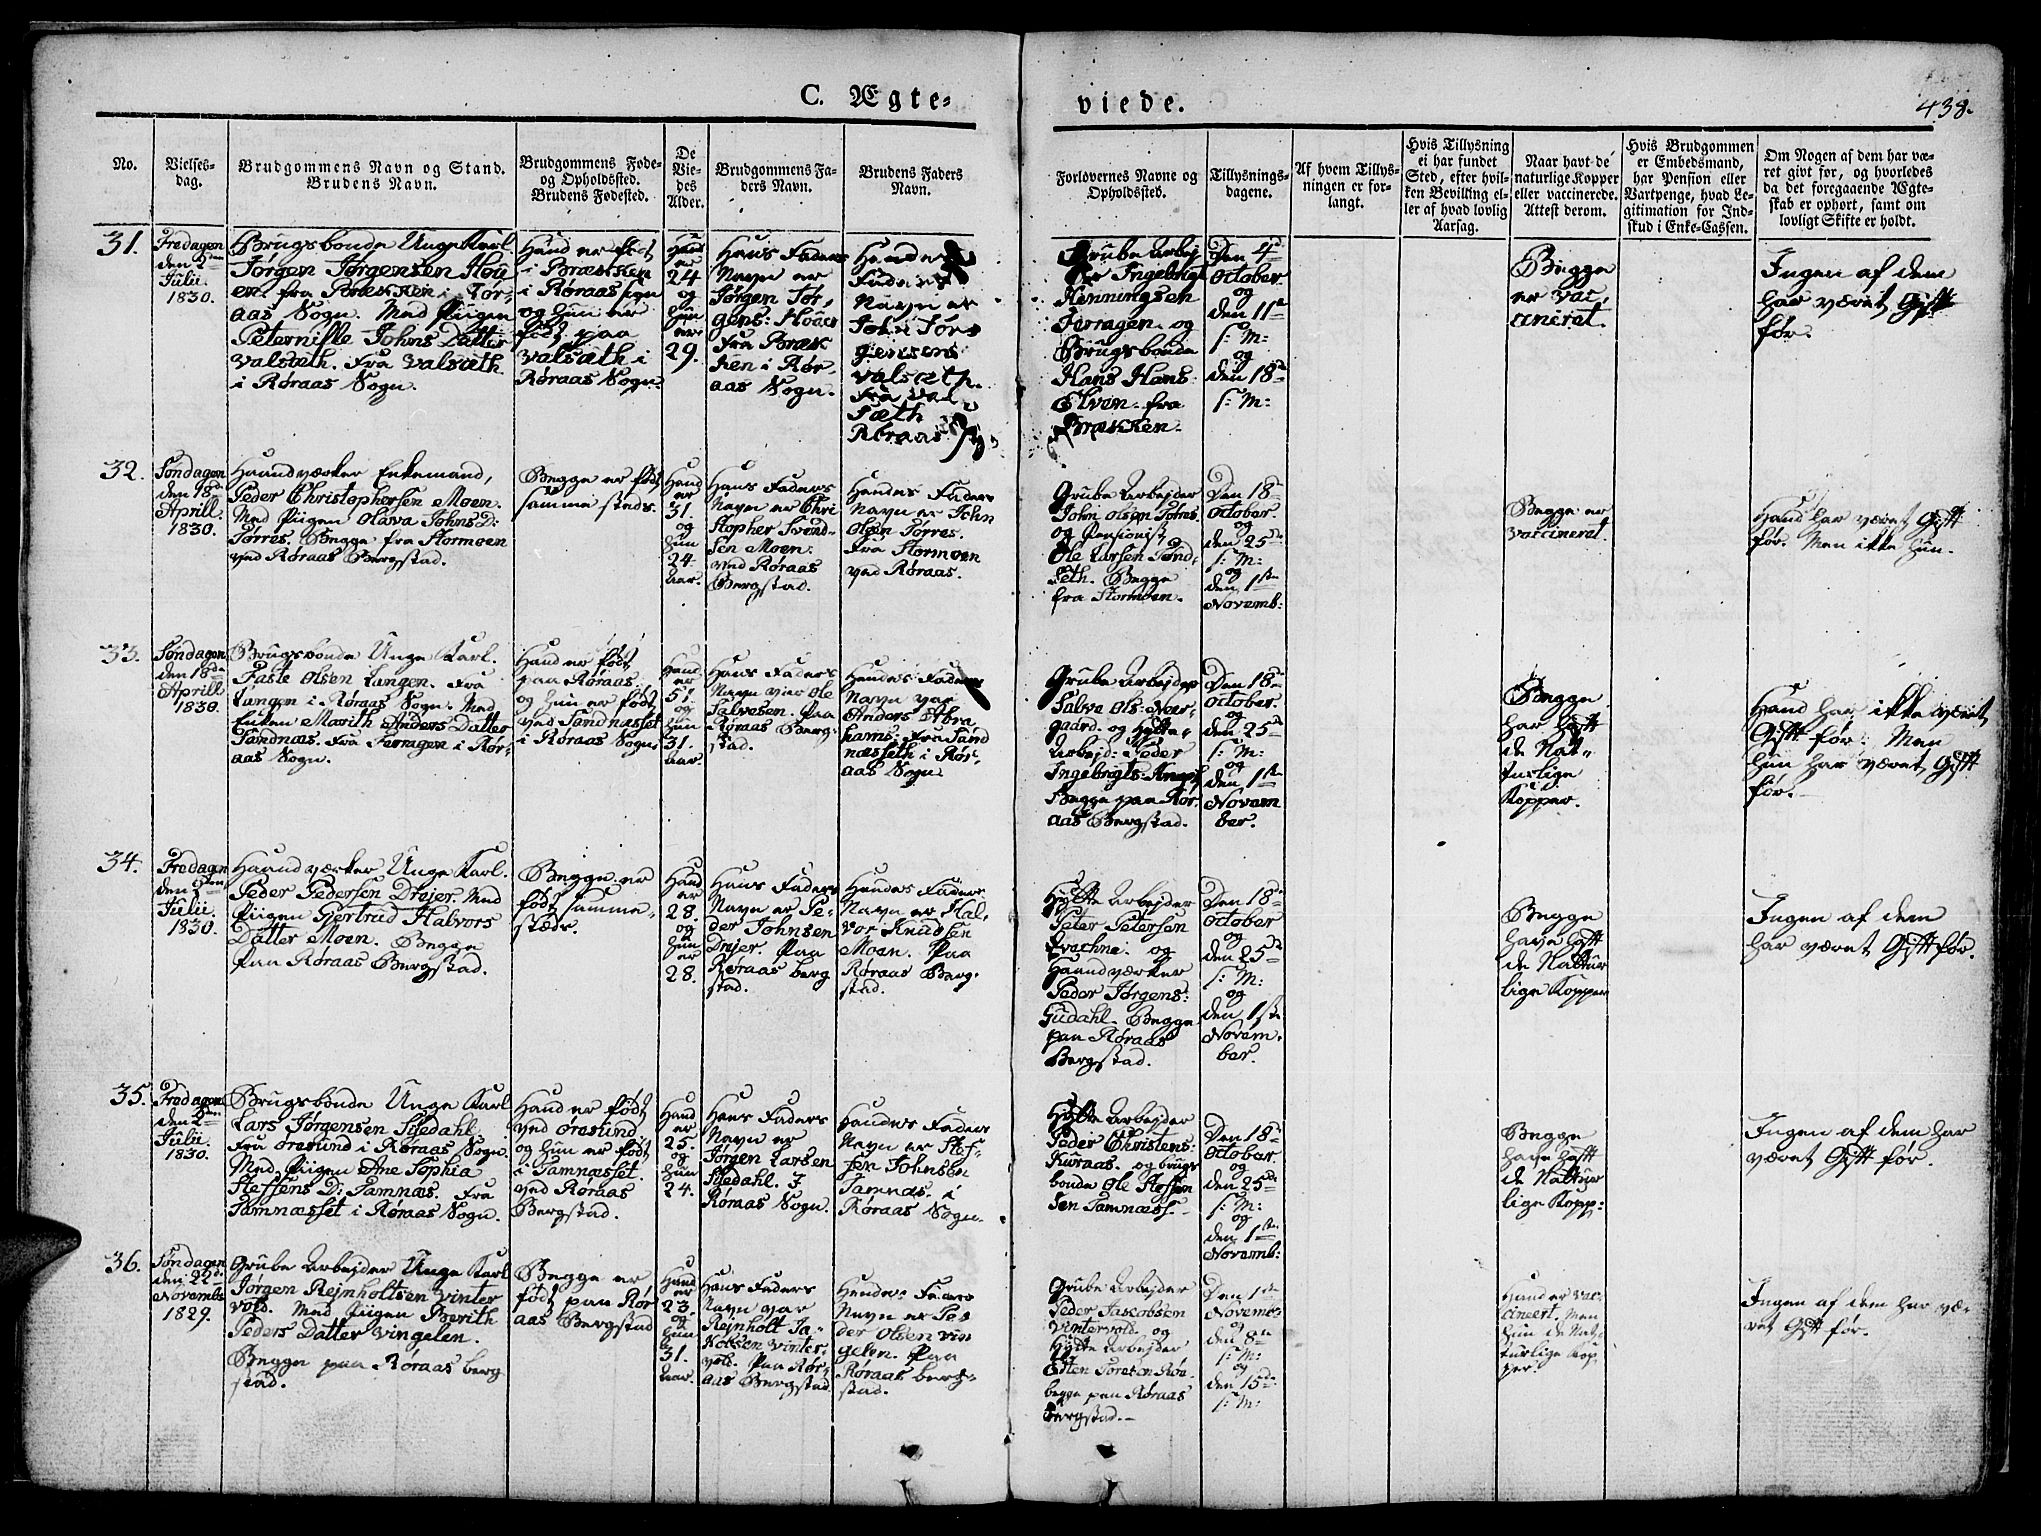 C. Ægte-
viede.
438.
No.
Vielses-
dag.
Brudgommens Navn og Stand.
Brudens Navn.
Brudgommens Føde-
og Opholdssted.
Brudens Fødested.
De
Vie-
des
Alder.
Brudgommens Fa-
ders Navn.
Brudens Faders
Navn.
Forlovernes Navne og
Opholdssted.
Tillysnings-
dagene.
Af hvem Tillys-
ningen er for-
langt.
Hvis Tillysning
ei har fundet
Sted, efter hvil-
ken Bevilling el-
ler af hvad lovlig
Aarsag.
Naar havt de
naturlige Kopper
eller vaccinerede.
Attest derom.
Hvis Brudgommen
er Embedsmand,
har Pension eller
Vartpenge, hvad Le-
gitimation for Ind-
skud i Enke-Cassen.
Om Nogen af dem har væ-
ret givt før, og hvorledes
da det foregaaende Ægte-
skab er ophørt, samt om
lovligt Skifte er holdt.
31.
Fredagen
den 2den
Julii.
1830.
Brugsbonde Unge Karl
Jørgen Jørgensen Høi-
en. fra Brækken i Rør-
aas Sogn. Med Piigen
Peternille Johns Datter
Valsæth. Fra Valsæth
i Røraas Sogn.
Hand er født
i Brækken
i Røraas Sogn
og hun er
født paa
Valsæth i
Røraas Sogn.
Hand
er
24
og
hun
er
29.
Hans Faders
Navn er
Jørgen Jør-
gens: Høien
fra Bræk
ken i Rør
aas Sogn.
Hendes
Faders
Navn er
John Jørs
gensens
Valsæth.
Fra Val-
sæth
Røraas
Grube Arbej
er Ingebrigt
Henningsen
Jerragen. og
Brugsbonde
Hans Hans:
Elven. fra
Brækken.
Den 4de
October
og
den 11te
s: M:
og
den 18de
s: M:
Begge
er vac
cineret.
Ingen af dem
har været Gift
før.
32.
Søndagen
den 18de
Aprill.
1830.
Haandværker Enkemand,
Peder Christophersen Moen.
Med Piigen Olava Johns D:
Torres. Begge fra Stormoen
ved Røraas Bergstad.
Begge er født
samme steds.
Hand
er
31.
og
hun
24
Aar.
Hans Faders
Navn er Chri
stopher Svend-
sen Moen.
ved Røraas
Bergstad.
Hendes Faders
Navn er John
Olsen Torres.
Fra Stormoen
ved Røraas.
Grube Arbejder
John Olsen Torres.
og Pensionist
Ole Larsen Sund-
seth. Begge
fra Stormoen.
Den 18de
October
og
den 25de
s: M:
og
den 1ste
Novemb:
Begge er
vaccineret
Hand har været Gift
før. Men ikke hun.
33.
Søndagen
den 18de
Aprill
1830.
Brugsbonde Unge Karl.
Faste Olsen Langen. Fra
Langen i Røraas Sogn. Med
Enken Marith Anders Datter
Sandnæs. Fra Jerragen i Rør-
aas Sogn.
Hand er født
paa Røraas.
og hun er født
ved Sandnæsset
i Røraas Sogn.
Hand
er
51.
og
hun
31.
Aar
Hans Faders
Navn ved Ole
Salvesen. Paa
Røraas Berg-
stad.
Hendes Faders
Navn var
Anders Abra
hams: fra Sand
næsseth i Rør-
aas Sogn.
Grube Arbejder
Salve Ols: Nær-
gaard. og Hytte-
Arbejd: Peder
Ingebrigts: Knapf
Begge paa Rør-
aas Bergstad.
Den 18de
October.
og
den 25de
s: M:
og
den 1ste
Novem
ber.
Begge
har haft
de Nat-
turlige
Kopper.
Hand har ikke været
Gift før. Men
hun har været Gift
før.
34.
Fredagen
den 2den
Julii.
1830.
Haandværker Unge Karl.
Peder Pedersen Drejer. Med
Piigen Gjertrud Halvors
Datter Moen. Begge
Paa Røraas Bergstad.
Begge er
født samme-
stæds.
Hand
er
28.
og
hun
er
28.
Hans Faders
Navn er Pe-
der Johnsen
Drejer. Paa
Røraas Berg
stad.
Hendes Faders
Navn er Hal-
vor Knudsen
Moen. Paa
Røraas Berg-
stad.
Hytte Arbejder
Peter Petersen
og
Haandværker
Peder Jørgens:
Gudahl. Begge
paa Røraas
Bergstad.
Den 18de
October
og
den 25de
s: M:
og
den 1ste
Novem-
ber.
Begge
have haft
de Nattur
lige Kopper
Ingen af dem
har været Gift før.
35.
Fredagen
den 2den
Julii.
1830.
Brugsbonde Unge Karl
Lars Jørgensen Sledahl.
fra Øresund i Røraas Sogn.
Med Piigen Ane Sophia
Steffens D: Tamnæs. Fra
Tamnæsset i Røraas Sogn.
Hand er født
ved Øresund
og hun er født
i Tamnæsset.
ved Røraas
Bergstad.
Hand
er
25.
og
hun
24.
Hans Faders
Navn er
Jørgen Larsen
Sledahl. I
Røraas Sogn.
Hendes Faders
Navn er Stef-
fen Johnsen
Tamnæs. i
Røraas Sogn.
Hytte Arbejder
Peder Christens:
Kuraas. og brugs
bonde Ole Steffen
sen Tamnæss.
Den 18de
October.
og
den 25de
s: M:
og
den 1ste
Novemb:
Begge
have haft
de Nattur
lige Kopp:
Ingen af dem har
været Gift før.
36.
Søndagen
den 22de
Novembr
1829.
Grube Arbejder Unge Karl
Jørgen Rejnholtsen Vinter
vold. Med Piigen Berith
Peders Datter Vingelen.
Begge paa Røraas berg
stad.
Begge er
født paa Rør
aas Bergstad
Hand
er
23.
og
hun
31.
Aar.
Hans Faders
Navn var
Rejnholt Ja-
kobsen Vinter-
vold. Paa Rør-
aas Bergstad
Hendes Faders
Navn er Pe-
der Olsen Vin
gelen. Paa
Røraas berg-
stad.
Grube Arbejder
Peder Jacobsen
Vintervold. og
Hytte Arbejder
Esten Toresen Røe.
begge paa Røraas
Bergstad.
Den 1ste
Novembr
og
den 8de
s: M:
og
den 15de
s: M:
Hand er vac-
cineert. Men
hun de Nat-
turlige Kop
per.
Ingen af dem har væ-
ret Gift før.